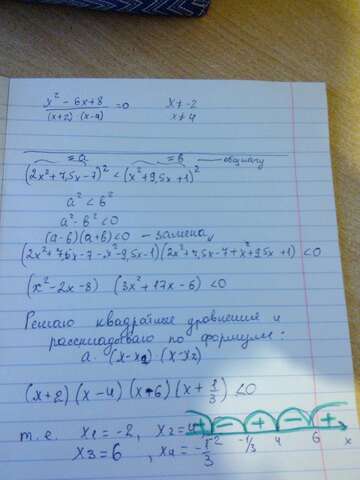 x² - 6x + 8 / (x+2)·(x-4) = 0   x ≠ -2
x ≠ 4
= a   = b — обозначу
(2x² + 7,5x - 7)² < (x² + 9,5x + 1)²
a² < b²
a² - b² < 0
(a-b)(a+b) < 0 - замена
(2x² + 7,5x - 7 - x² - 9,5x - 1)(2x² + 7,5x - 7 + x² + 9,5x + 1) < 0
(x² - 2x - 8) (3x² + 17x - 6) < 0
Решаю квадратные уравнения и
раскладываю по формуле:
a·(x-x₁)·(x-x₂)
(x+2)(x-4)(x-6)(x+1/3) < 0
т.е. x₁ = -2, x₂ = 4
x₃ = 6, x₄ = -1/3
+ - + - +
-2 -1/3 4 6 x